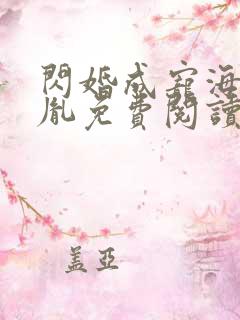 閃婚成寵海
胤免費閱讀
蓋亞